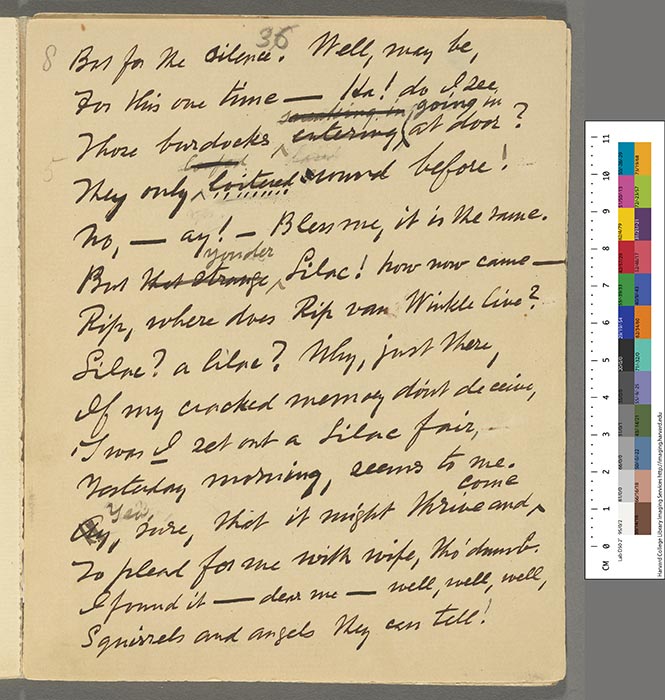 36
8 But for the silence. Well, may be,
For this one time — Ha! do I see
sneaking in going in
Those burdocks entering, at door?
They only loitered round before!
No, — ay! — Bless me, it is the same.
yonder
But that strange Lilac! how now came —
Rip, where does Rip van Winkle live?
Lilac? a lilac? Why, just there,
If my cracked memory don't deceive,
'Twas I set out a Lilac fair, —
Yesterday morning, seems to me.
Yea, come
Ay, sure, that it might thrive and
To plead for me with wife, tho' dumb.
I found it — dear me — well, well, well,
Squirrels and angels they can tell!
CM 0 1 2 3 4 5 6 7 8 9 10 11
Harvard College Library Imaging Services http://imaging.harvard.edu